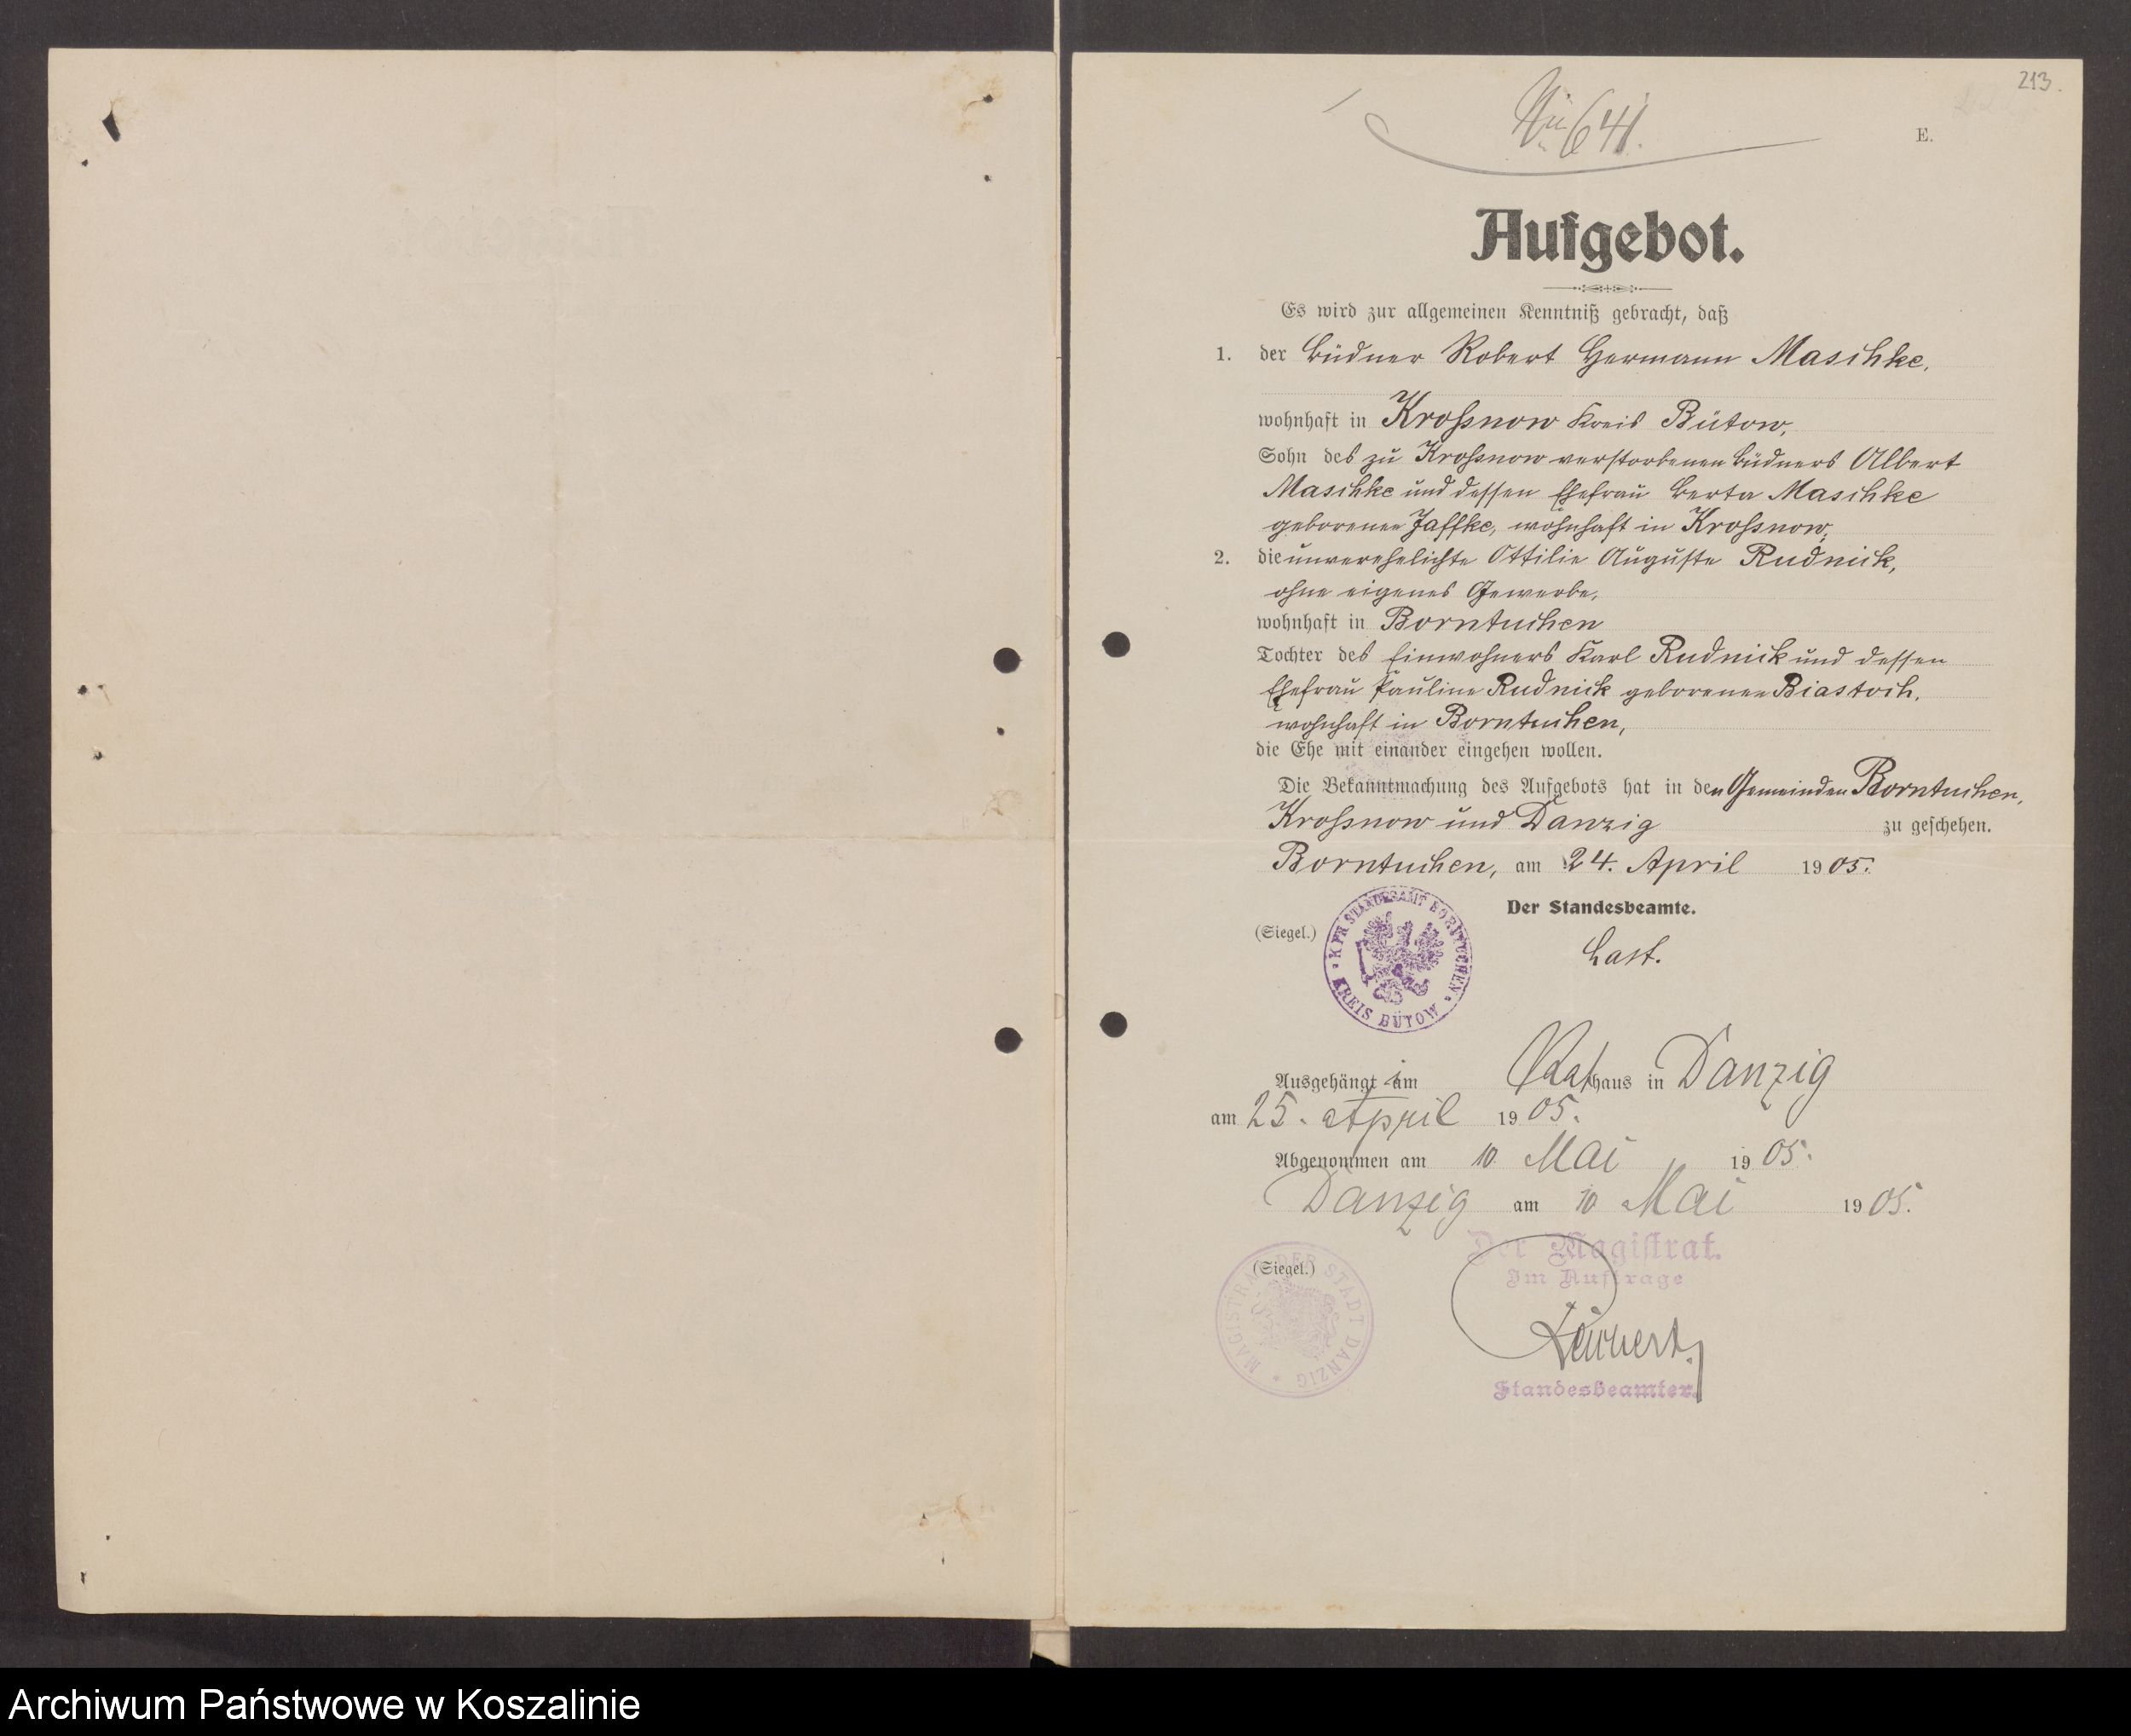 213.
№ 641.
E.
Aufgebot.
Es wird zur allgemeinen Kenntniß gebracht, daß
1. der Büdner Robert Hermann Maschke,
wohnhaft in Kroßnow Kreis Bütow,
Sohn des zu Kroßnow verstorbenen Büdners Albert
Maschke und dessen Ehefrau Berta Maschke
geborenen Jaffke, wohnhaft in Kroßnow,
2. die unverehelichte Ottilie Auguste Rudnick,
ohne eigenes Gewerbe,
wohnhaft in Borntuchen
Tochter des Einwohners Karl Rudnick und dessen
Ehefrau Pauline Rudnick geborenen Biastoch,
wohnhaft in Borntuchen,
die Ehe mit einander eingehen wollen.
Die Bekanntmachung des Aufgebots hat in den Gemeinden Borntuchen,
Kroßnow und Danzig zu geschehen.
Borntuchen, am 24. April 1905.
Der Standesbeamte.
(Siegel.)
K PR STANDESAMT BORNTUCHEN
KREIS BÜTOW
Last.
Ausgehängt im Rathaus in Danzig
am 25. April 1905.
Abgenommen am 10 Mai 1905.
Danzig am 10 Mai 1905.
Der Magistrat.
(Siegel.)
MAGISTRAT DER STADT DANZIG
Im Auftrage
Standesbeamter.
Archiwum Państwowe w Koszalinie